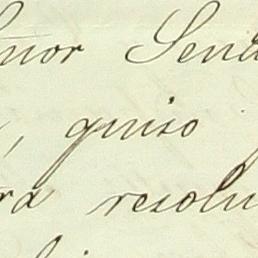 ñor Sena
, quiso
ra resolu